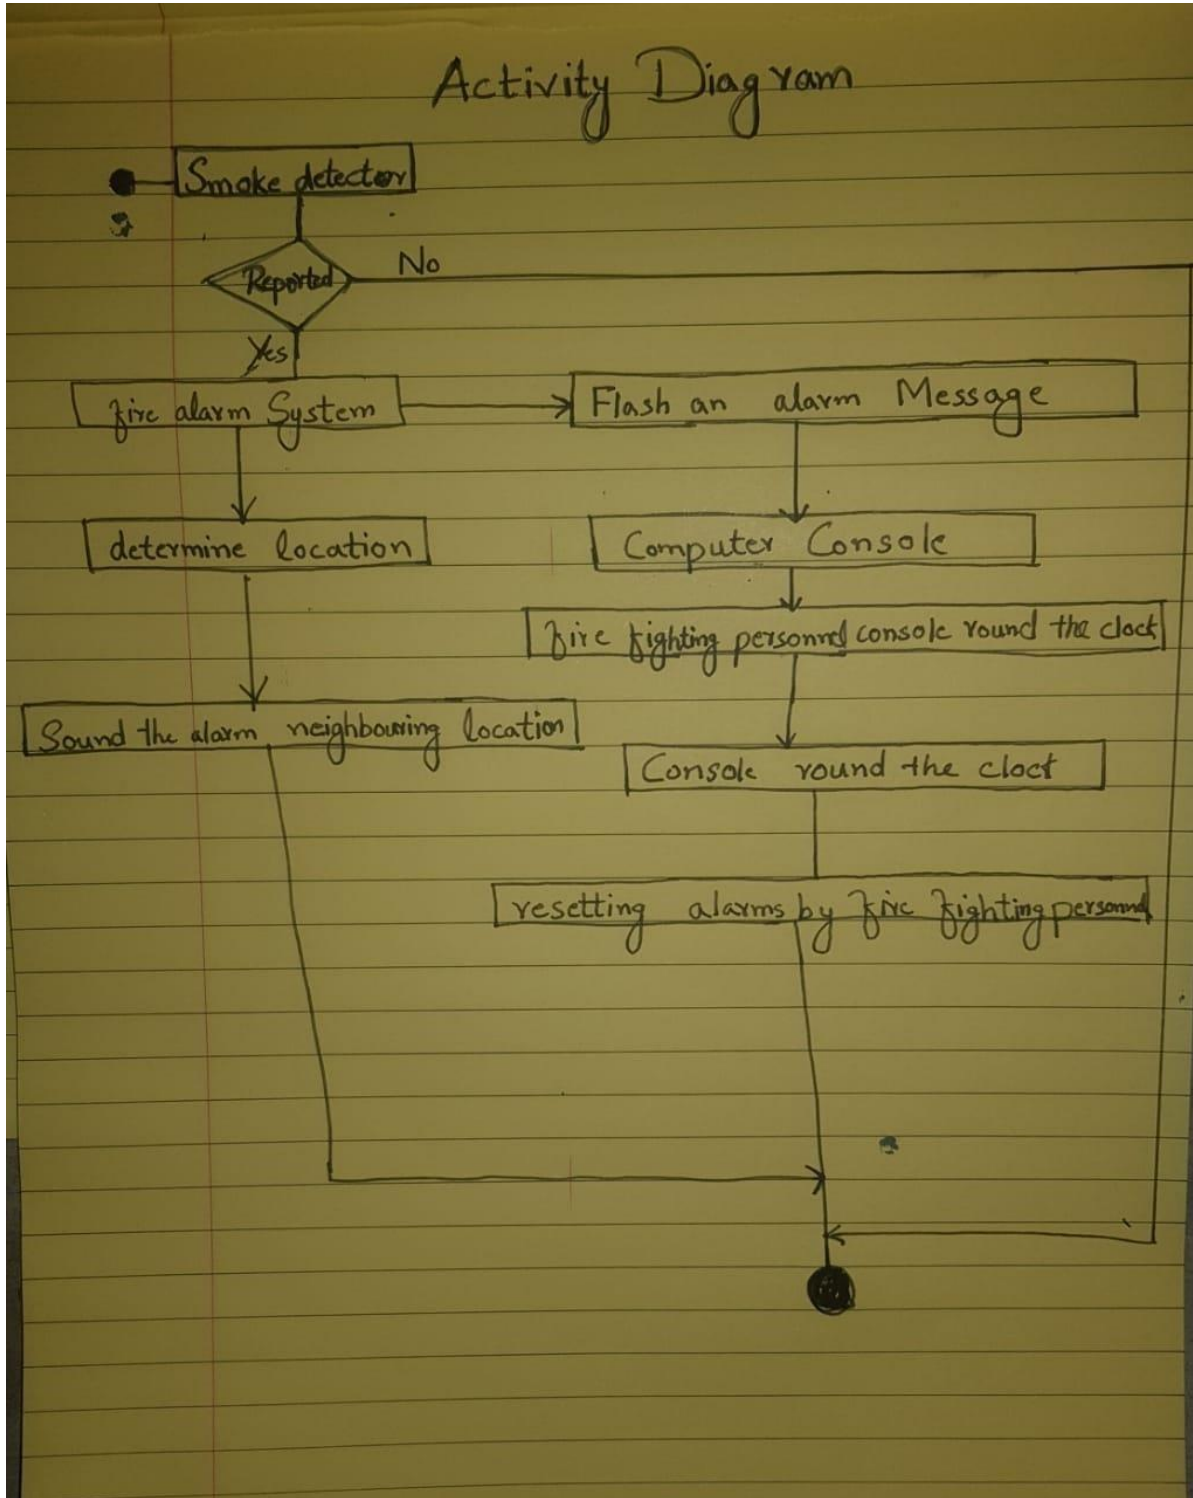 Activity Diagram
Smoke detector
Reported
No
Yes
fire alarm System
Flash an alarm Message
determine location
Computer Console
fire fighting personnel console round the clock
Sound the alarm neighbouring location
Console round the clock
resetting alarms by fire fighting personnel